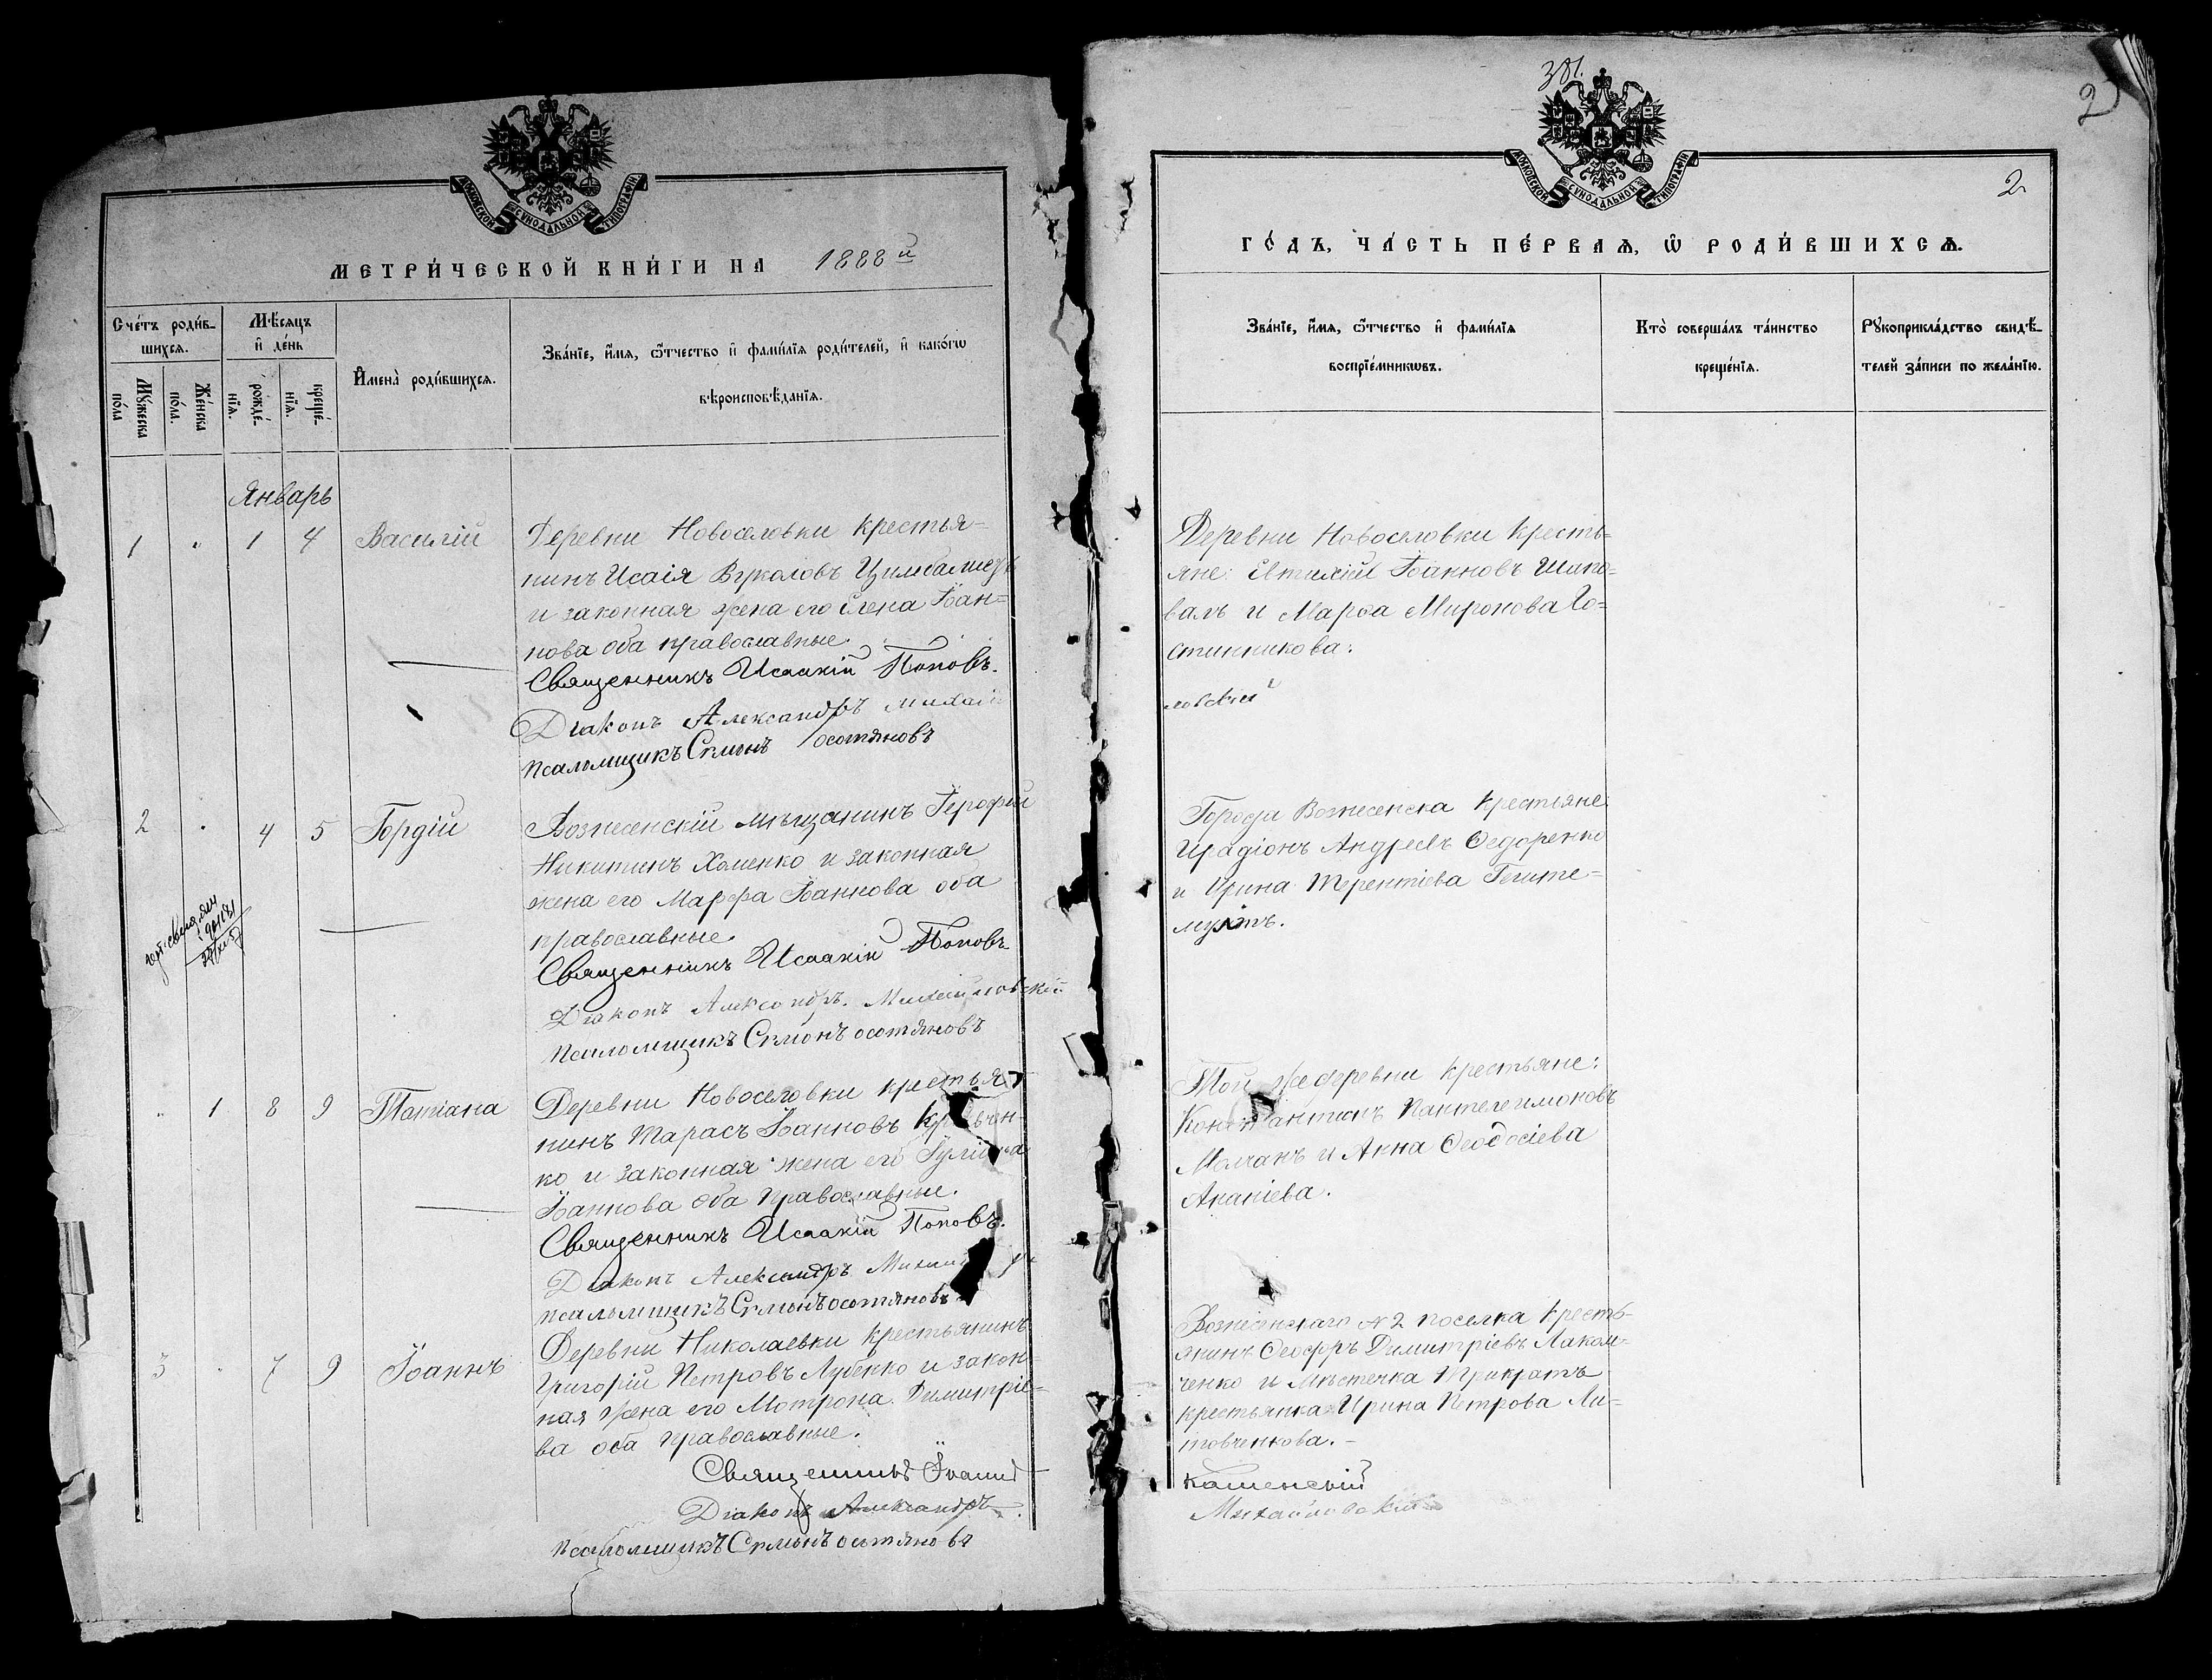 МОСКОВСКОЙ СѴНОДАЛЬНОЙ ТИПОГРАФІИ.
МЕТРИ́ЧЕСКОЙ КНИ́ГИ НА 1888й
Сче́тъ роди́в-
шихсѧ.
Мѣ́сѧцъ
и҆ де́нь
И҆мена̀ роди́вшихсѧ.
Зва́нїе, и҆́мѧ, ѻ҆́тчество и҆ фами́лїѧ роди́телей, и҆ како́гѡ
вѣроисповѣ́данїѧ.
Мꙋ́жеска
по́ла
Же́нска
по́ла.
рожде́-
нїѧ.
креще́-
нїѧ.
Январь
1 " 1 4 Василій
Деревни Новоселовки крестья-
нинъ Исаія Вуколовъ
и законная жена его Елена Іоан-
нова оба православные
Священникъ Исаакій Поповъ.
Діаконъ Александръ Михай
Псаломщикъ Осотяновъ
2 " 4 5 Гордій
Вознесенскій мѣщанинъ Іерофей
Никитинъ Хоменко и законная
жена его Марфа Іоаннова оба
православные
Священникъ Исаакій Поповъ
Діаконъ Александръ. Михайловскій
Псаломщикъ Осотяновъ
" 1 8 9 Татіана
Деревни Новоселовки крестья
нинъ Тарасъ Іоанновъ
ко и законная жена его
Іоаннова оба православные.
Священникъ Исаакій Поповъ.
Діаконъ Александръ
псаломщикъ Осотяновъ
3 " 7 9 Іоаннъ
Деревни Николаевки крестьянинъ
Григорій Петровъ Лубенко и закон-
ная жена его Мотрона Димитріе-
ва оба православные.
Священникъ Іоаннъ
Діаконъ Александръ
Псаломщикъ Осотянова
381.
2
МОСКОВСКОЙ СѴНОДАЛЬНОЙ ТИПОГРАФІИ.
2
ГО́ДЪ, ЧА́СТЬ ПЕ́РВАѦ, Ѡ҆ РОДИ́ВШИХСѦ.
Зва́нїе, и҆́мѧ, ѻ҆́тчество и҆ фами́лїѧ
воспрїе́мникѡвъ.
Кто̀ соверша́лъ та́инство
креще́нїѧ.
Рꙋкоприкла́дство свидѣ́-
телей за́писи по жела́нїю.
Деревни Новоселовки кресть-
яне: Евтихій Іоанновъ Шапо-
валъ и Марфа Миронова Го-
стинникова.
ловскій
Города Вознесенска крестьяне:
Иродіонъ Андреевъ Федоренко
и Ирина Терентіева
Той же деревни крестьяне:
Константинъ Пантелеимоновъ
Молчанъ и Анна Феодосіева
Ананіева.
Вознесенскаго № 2 поселка кресть-
янинъ Димитріевъ Лаком-
ченко и мѣстечка
крестьянка Ирина Петрова Ли-
товченкова.-
Каменскій
Михайловскій